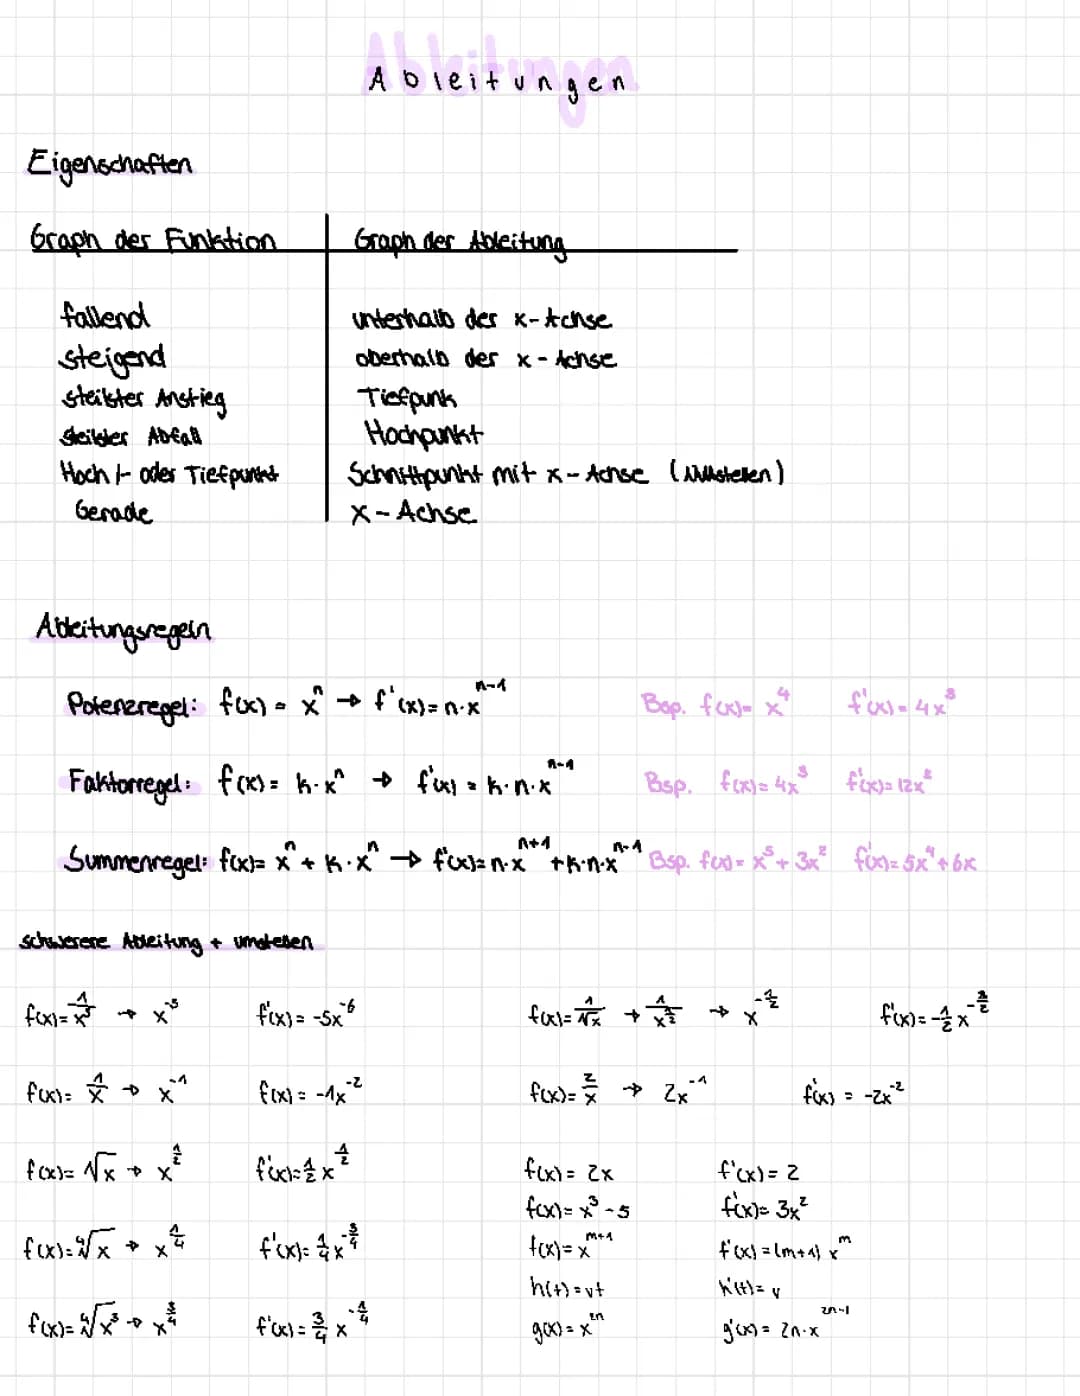 Ableitungen
Eigenschaften
Graph der Funktion Graph der Ableitung
fallend unterhalb der x-Achse
steigend oberhalb der x-Achse
steilster Anstieg Tiefpunk
steilster Abfall Hochpunkt
Hoch /- oder Tiefpunkt Schnittpunkt mit x-Achse (Nullstellen)
Gerade x-Achse
Ableitungsregeln
Potenzregel: f(x) = xⁿ → f'(x)= n·xⁿ⁻¹ Bsp. f(x)= x⁴ f'(x)= 4x³
Faktorregel: f(x)= k·xⁿ → f'(x) = k·n·xⁿ⁻¹ Bsp. f(x)= 4x³ f'(x)= 12x²
Summenregel: f(x)= xⁿ + k·xⁿ → f'(x)= n·xⁿ⁺¹ + k·n·xⁿ⁻¹ Bsp. f(x)= x⁵ + 3x² f'(x)= 5x⁴ + 6x
schwerere Ableitung + umstellen
f(x)= 1/x⁵ → x⁻⁵ f'(x)= -5x⁻⁶ f(x)= 1/√x → 1/x^(1/2) → x^(-1/2) f'(x)= -1/2 x^(-3/2)
f(x)= 1/x → x⁻¹ f'(x)= -1x⁻² f(x)= 2/x → 2x⁻¹ f'(x) = -2x⁻²
f(x)= √x → x^(1/2) f'(x)= 1/2 x^(1/2) f(x)= 2x f'(x)= 2
f(x)= x³ - 5 f'(x)= 3x²
f(x)= ⁴√x → x^(1/4) f'(x)= 1/4 x^(-3/4) f(x)= x^(m+1) f'(x) = (m+1) x^m
h(t) = vt h'(t)= v
f(x)= ⁴√x³ → x^(3/4) f'(x)= 3/4 x^(-1/4) g(x) = x^(2n) g'(x) = 2n·x^(2n-1)